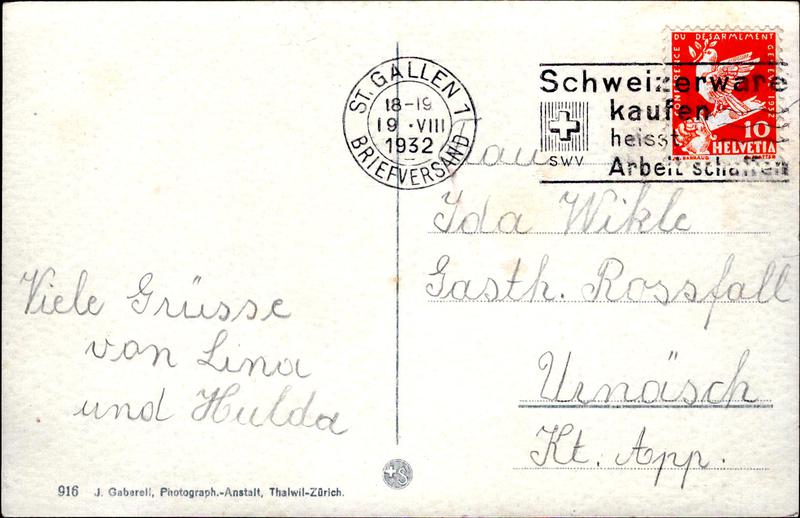 ST. GALLEN 1
18-19
19.VIII
1932
BRIEFVERSAND
CONFERENCE DU DESARMEMENT GENEVE 1932
10
HELVETIA
Schweizerware
kaufen
heisst
Arbeit schaffen
SWV
Frau
Ida Wikle
Gasth. Rossfall
Urnäsch
Kt. App.
Viele Grüsse
von Lina
und Hulda
916 J. Gaberell, Photograph.-Anstalt, Thalwil-Zürich.